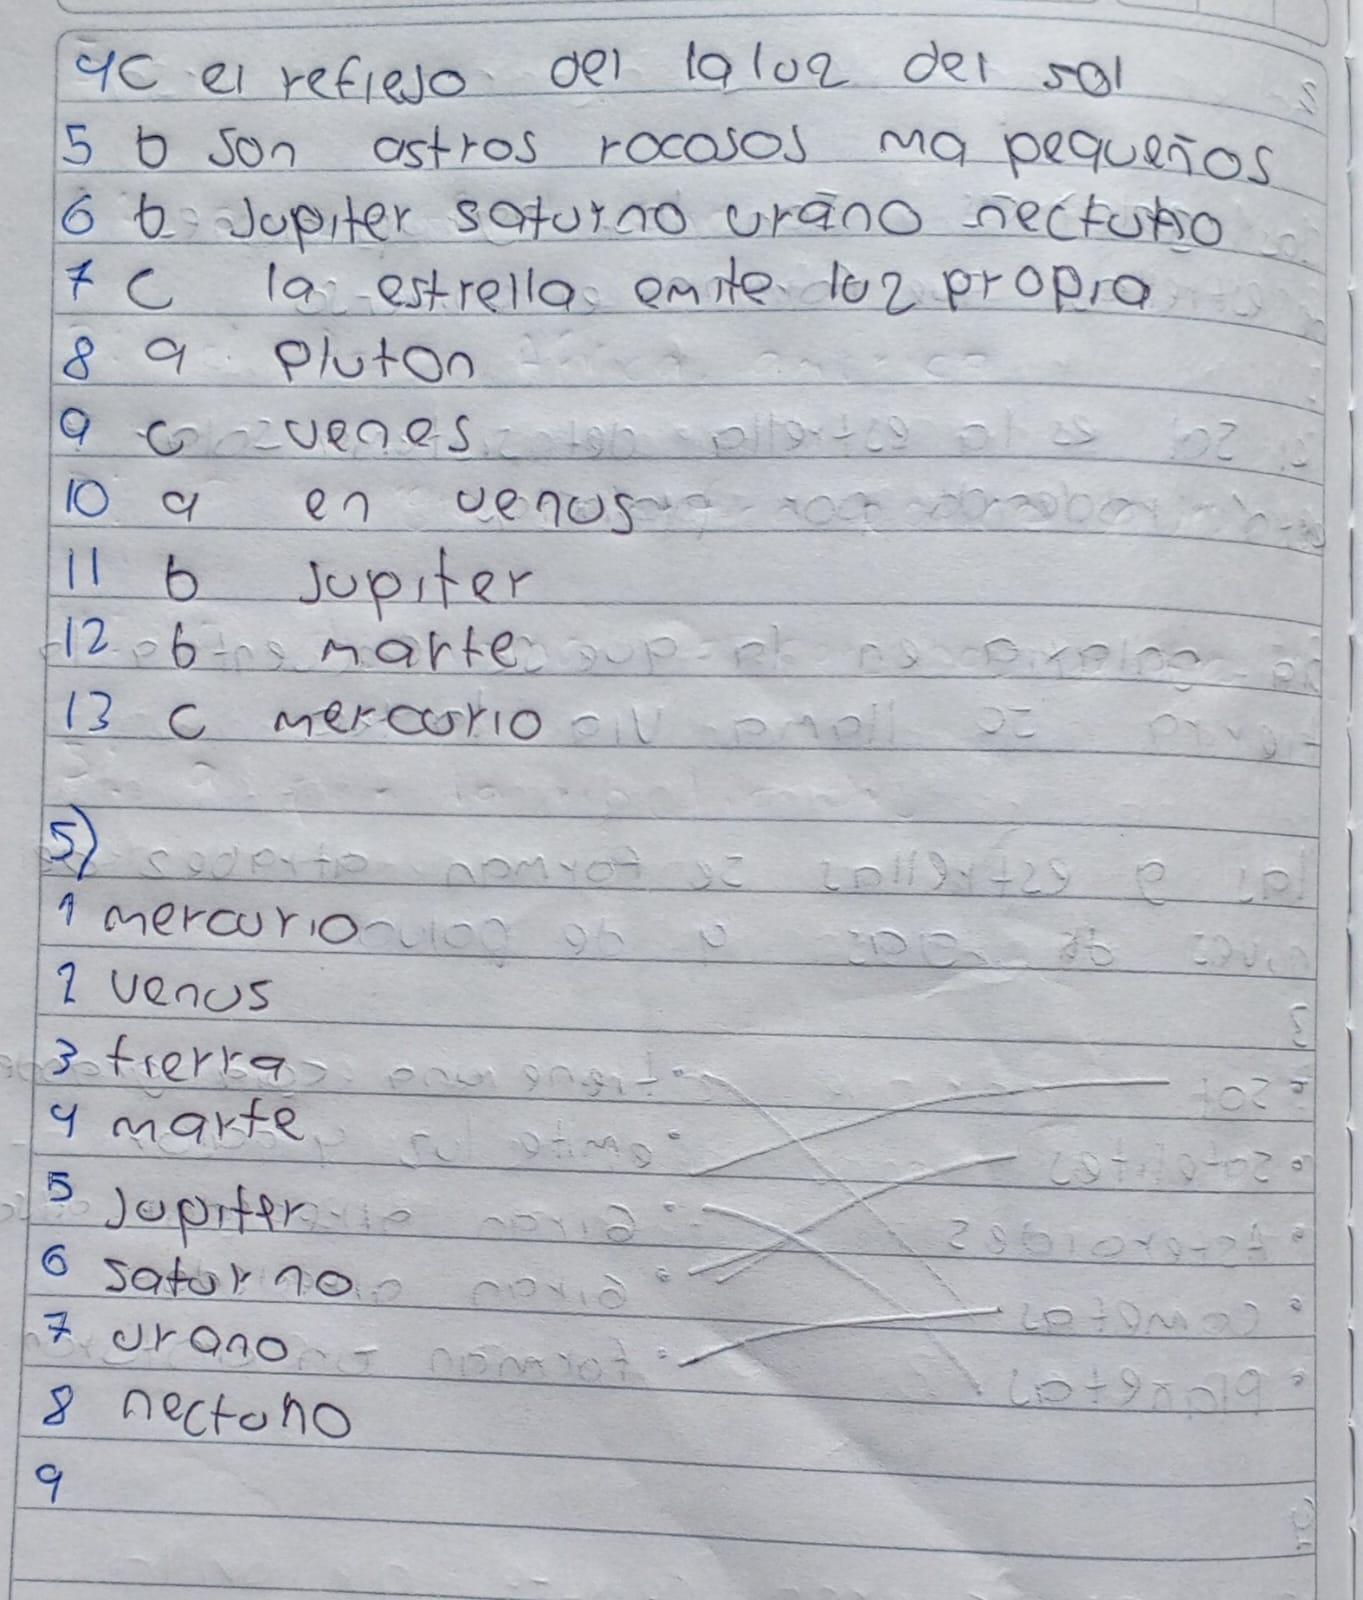 4C el reflejo del la luz del sol
5 b son astros rocosos ma pequeños
6 b Jupiter saturno urano nectuno
7 C la estrella emite luz propia
8 a pluton
9 c venes
10 a en venus
11 b Jupiter
12 b marte
13 c mercurio
5)
1 mercurio
2 venus
3 tierra
4 marte
5 Jupiter
6 saturno
7 urano
8 nectuno
9